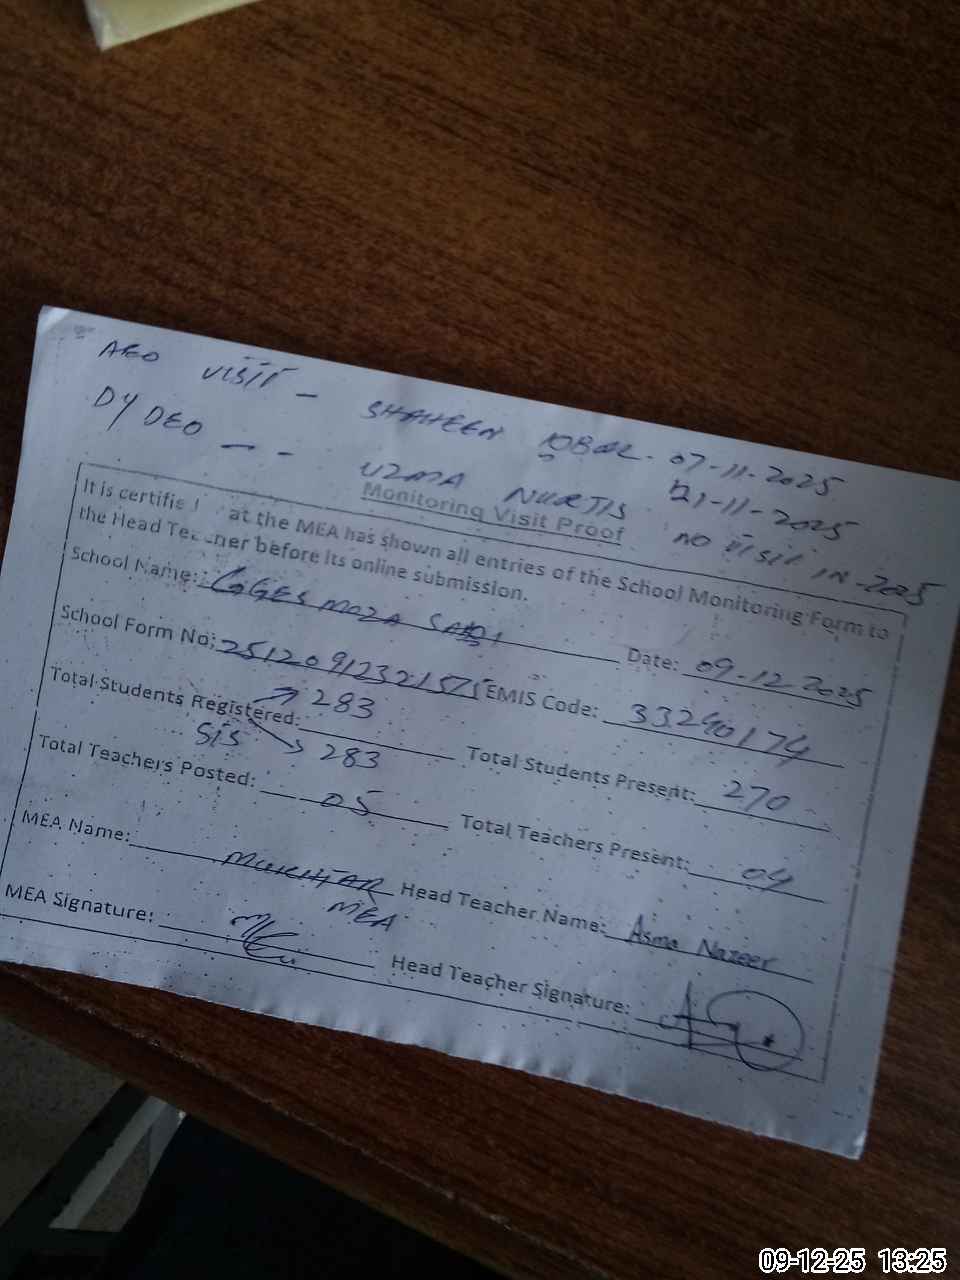 AEO VISIT - SHAHEEN IQBAL. 07-11-2025
21-11-2025
DY DEO - - UZMA NO VISIT IN -2025
Monitoring Visit Proof
It is certified at the MEA has shown all entries of the School Monitoring Form to
the Head Teacher before its online submission.
School Name: MOZA Date: 09-12-2025
School Form No: EMIS Code: 33290174
Total Students Registered: 283 Total Students Present: 270
SIS 283
Total Teachers Posted: 05 Total Teachers Present: 04
MEA Name: MUKHTAR Head Teacher Name: Asma Nazeer
MEA
MEA Signature: Head Teacher Signature:
09-12-25 13:25